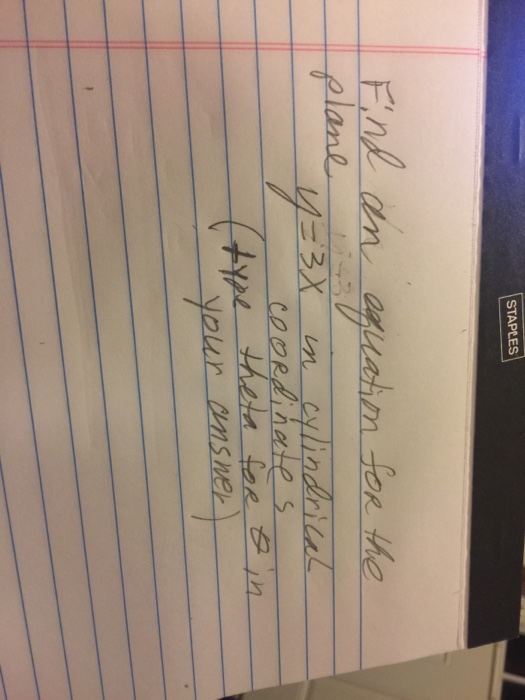 STAPLES
Find an equation for the
plane
y=3x in cylindrical
coordinates
(type theta for θ in
your answer)